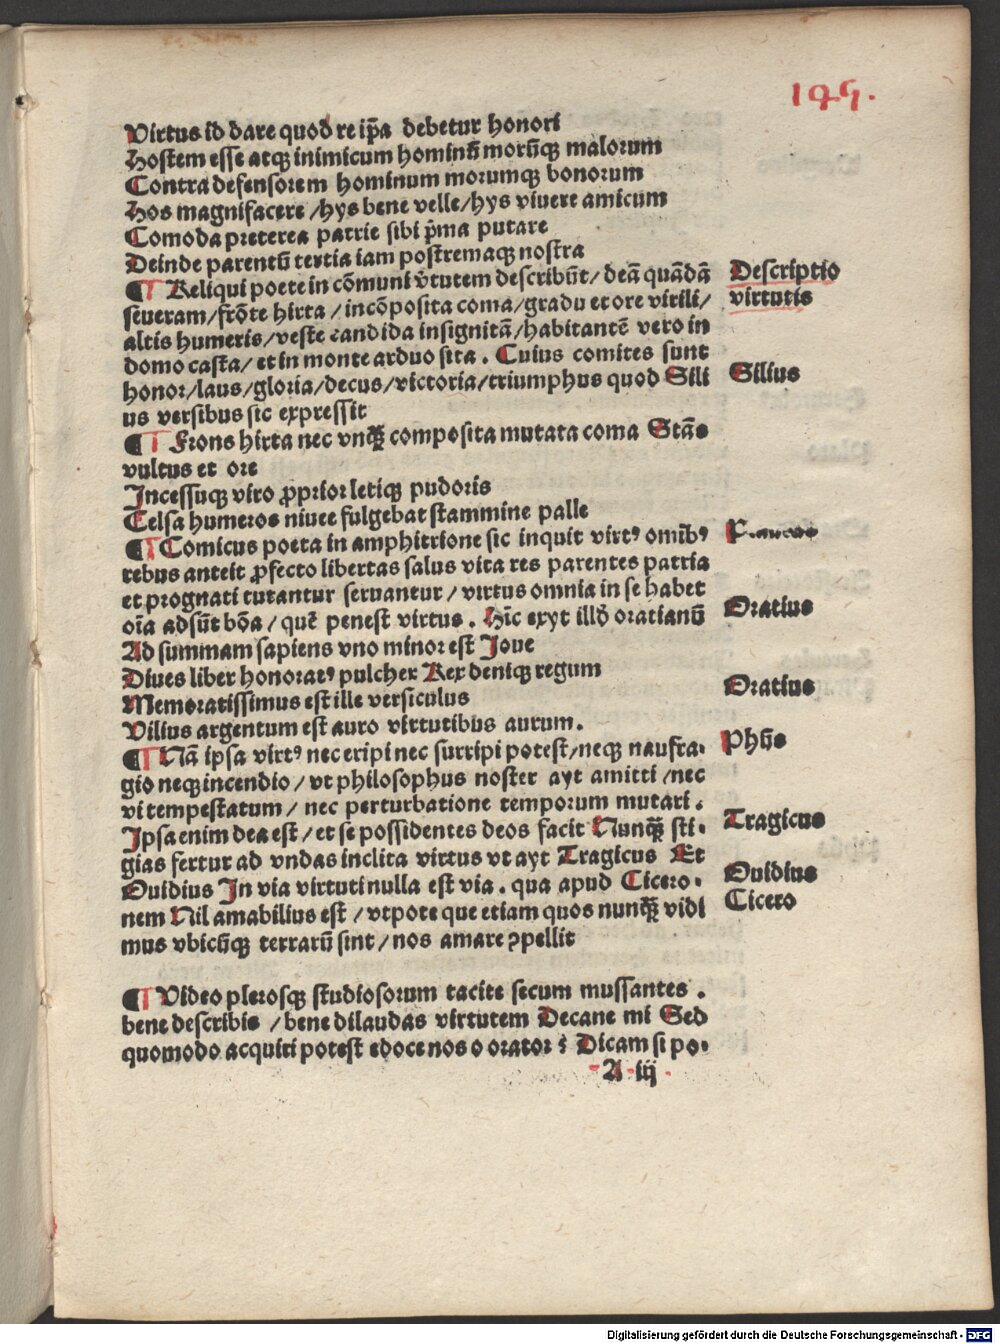 195.
Virtus id dare quod re ip̃a debetur honori
Hostem esse atqꝫ inimicum hominũ morũqꝫ malorum
Contra defensorem hominum morumqꝫ bonorum
Hos magnifacere /hys bene velle/hys vivere amicum
Comoda preterea patrie sibi p̃ma putare
Deinde parentũ tertia iam postremaqꝫ nostra
¶ Reliqui poete in cõmuni v̾tutem describũt/ deã quãdã
severam/frõte hirta / incõposita coma/gradu et ore virili/
altis humeris/veste candida insignitã/habitantẽ vero in
domo casta/ et in monte arduo sita . Cuius comites sunt
honor/laus/gloria/decus/victoria/triumphus quod Sili
us versibus sic expressit
¶ Frons hirta nec vnqꝫ̃ composita mutata coma Stãs
vultus et ore
Incessuqꝫ viro ꝓprior letiqꝫ pudoris
Celsa humeros nivee fulgebat stammine palle
¶ Comicus poeta in amphitrione sic inquit virtꝰ omĩbꝰ
rebus anteit ꝓfecto libertas salus vita res parentes patria
et prognati tutantur servantur / virtus omnia in se habet
oĩa adsũt bõa / quẽ penest virtus . Hĩc exyt illđ oratianũ
Ad summam sapiens vno minor est Jove
Dives liber honoratꝰ pulcher Rex deniqꝫ regum
Memoratissimus est ille versiculus
Vilius argentum est auro virtutibus aurum.
¶ Nã ipsa virtꝰ nec eripi nec surripi potest/neqꝫ naufra⸗
gio neqꝫ incendio / vt philosophus noster ayt amitti /nec
vi tempestatum / nec perturbatione temporum mutari .
Ipsa enim dea est / et se possidentes deos facit Nunqꝫ̃ sti⸗
gias fertur ad vndas inclita virtus vt ayt Tragicus Et
Ovidius In via virtuti nulla est via . qua apud Cicero⸗
nem Nil amabilius est / vtpote que etiam quos nunqꝫ̃ vidi
mus vbicũqꝫ terrarũ sint / nos amare ꝯpellit
¶ Video plerosqꝫ studiosorum tacite secum mussantes .
bene describis /bene dilaudas virtutem Decane mi Sed
quomodo acquiri potest edoce nos o orator ? Dicam si po⸗
A iij
Descriptio
virtutis
Silius
Oratius
Oratius
Phũs
Tragicus
Ovidius
Cicero
Digitalisierung gefördert durch die Deutsche Forschungsgemeinschaft - DFG